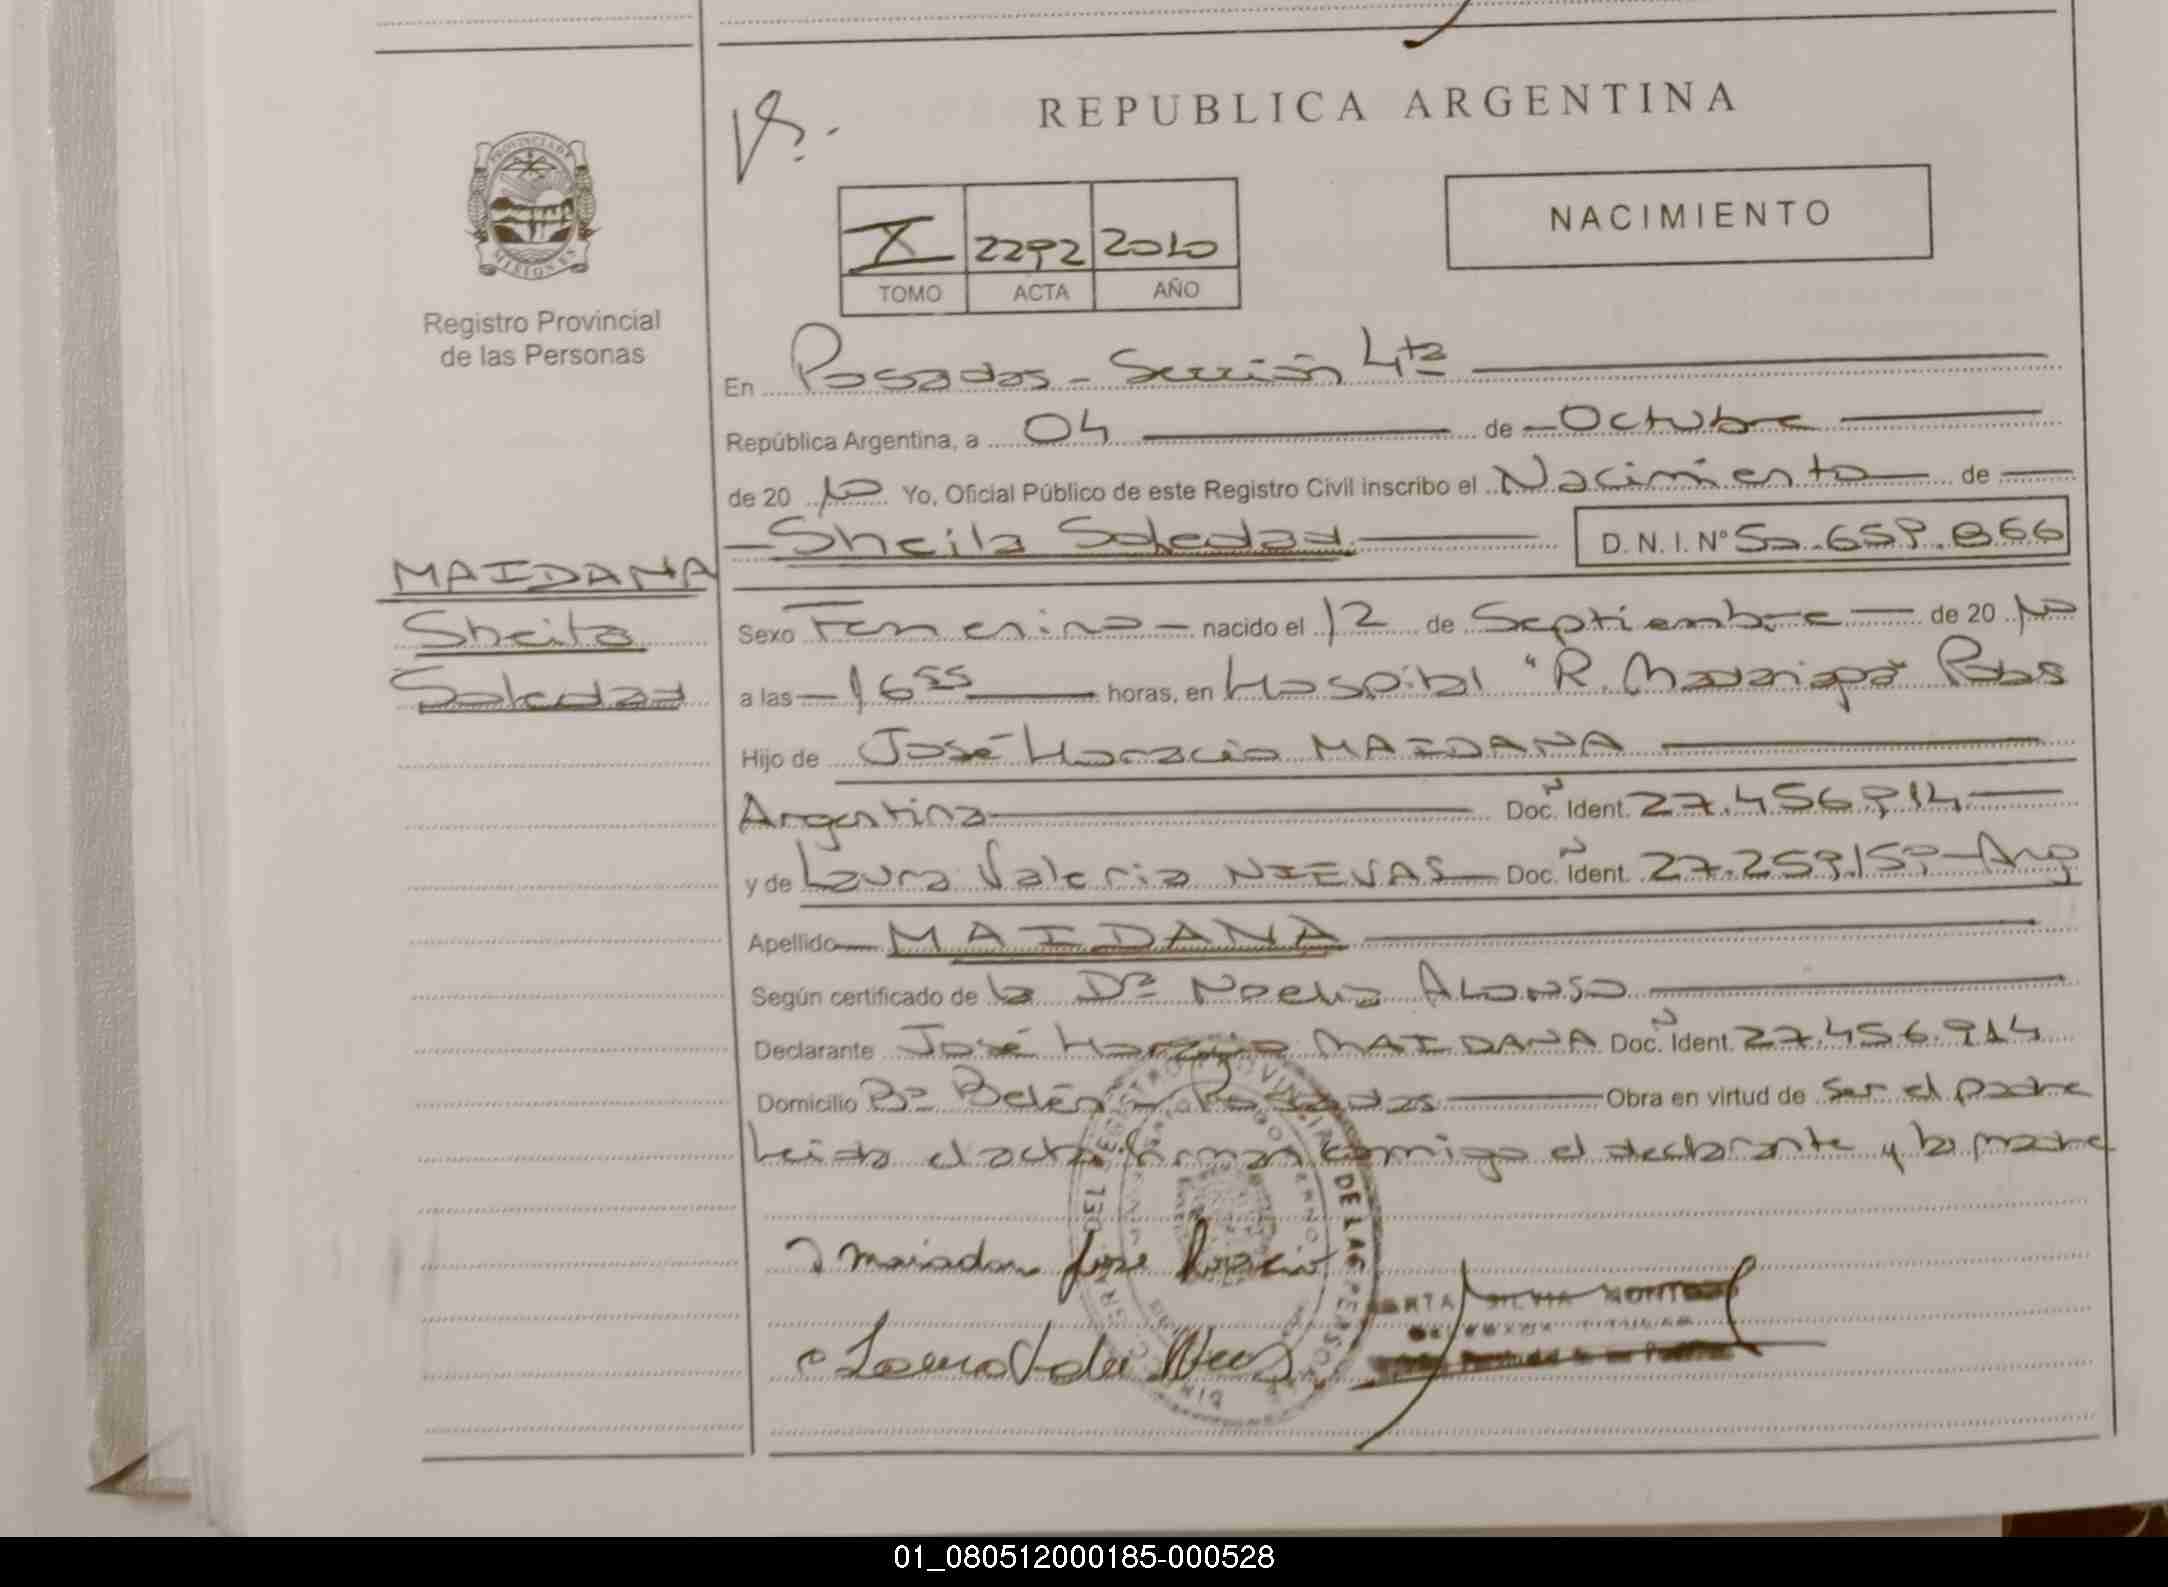 REPUBLICA ARGENTINA
PROVINCIA DE
MISIONES
Registro Provincial
de las Personas
NACIMIENTO
X 2292 2010
TOMO ACTA AÑO
En Posadas - Sección 4ta
República Argentina, a 04 de Octubre
de 20 10 Yo, Oficial Público de este Registro Civil inscribo el Nacimiento de
Sheila Soledad D. N. I. Nº 50.659.866
MAIDANA
Sheila
Soledad
Sexo Femenino - nacido el 12 de Septiembre de 20 10
a las 16 55 horas, en Hospital "R. Madariaga" Pdas
Hijo de José Horacio MAIDANA
Argentina Doc. Ident. 27.456.914
y de Laura Valeria NIEVAS Doc. Ident. 27.259.159 - Arg
Apellido MAIDANA
Según certificado de la Dra Noelia Alonso
Declarante José Horacio MAIDANA Doc. Ident. 27.456.914
Domicilio Bº Belén - Posadas Obra en virtud de ser el padre
Leida el acta firman conmigo el declarante y la madre
DE LAS PERSONAS
SILVIA
01_080512000185-000528